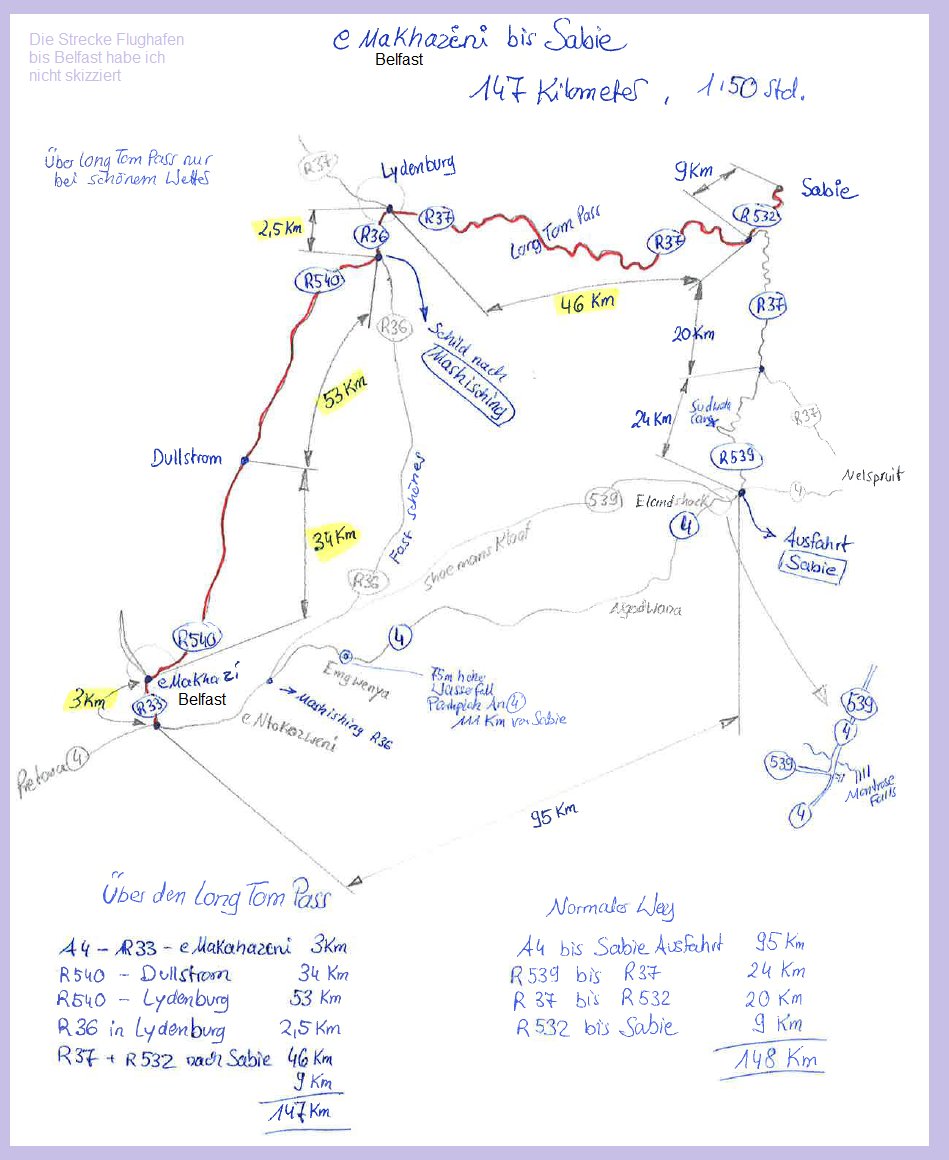 Die Strecke Flughafen
bis Belfast habe ich
nicht skizziert
e Makhazéni bis Sabie
Belfast
147 Kilometer, 1:50 Std.
Über long Tom Pass nur
bei schönem Wetter
R37
Lydenburg
9 Km
Sabie
2,5 Km
R36
R37
Long Tom Pass
R37
R532
R540
46 Km
R36
Schild nach
Mashisching
20 Km
R37
53 Km
24 Km
R37
R539
Dullstrom
Nelspruit
4
539
4
Ausfahrt
Sabie
34 Km
Fast schönes
R36
Shoemans Kloof
Ngodwana
R540
4
e Makhazi
Belfast
Emgwenya
75m hohe
Wasserfall
Parkpick An 4
111 Km vor Sabie
3 Km
R33
Mashishing R36
e Ntokozweni
539
4
539
Montrose
Falls
4
4
95 Km
Über den Long Tom Pass
A4 - R33 - e Makahazeni 3 Km
R540 - Dullstrom 34 Km
R540 - Lydenburg 53 Km
R36 in Lydenburg 2,5 Km
R37 + R532 nach Sabie 46 Km
9 Km
147 Km
Normaler Weg
A4 bis Sabie Ausfahrt 95 Km
R539 bis R37 24 Km
R 37 bis R532 20 Km
R532 bis Sabie 9 Km
148 Km